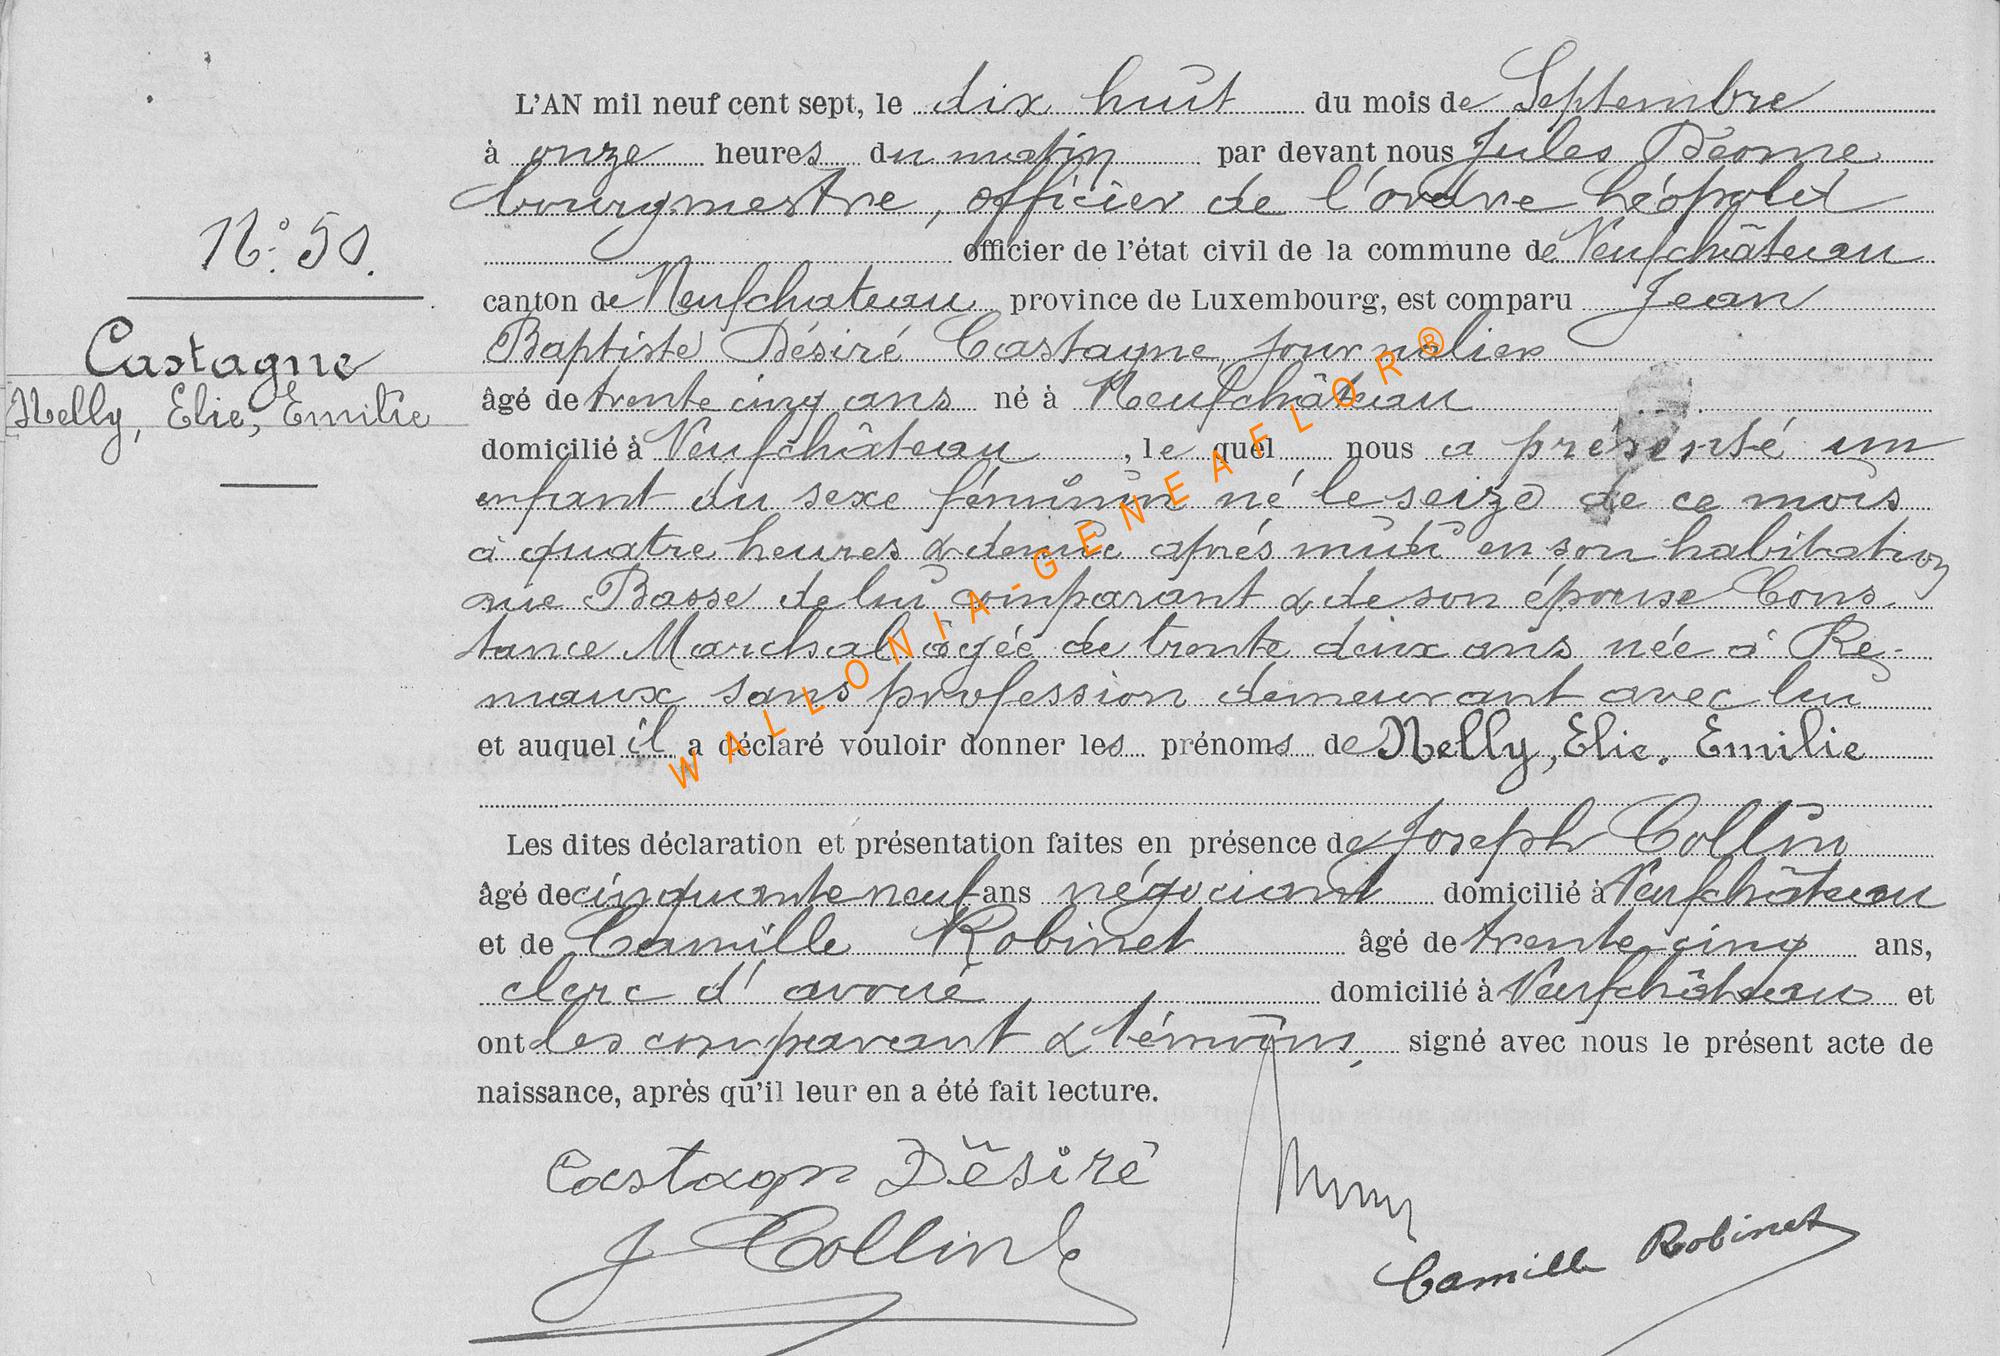 N° 50.
Castagne
Nelly, Elie, Emilie
L'AN mil neuf cent sept, le dix huit du mois de Septembre
à onze heures du matin par devant nous Jules Déome
bourgmestre, officier de l'ordre Léopold
officier de l'état civil de la commune de Neufchâteau
canton de Neufchateau province de Luxembourg, est comparu Jean
Baptiste Désiré Castagne, journalier
âgé de trente cinq ans né à Neufchâteau
domicilié à Neufchâteau, le quel nous a présenté un
enfant du sexe féminin né le seize de ce mois
à quatre heures & demie après midi en son habitation
rue Basse de lui comparant & de son épouse Cons-
tance Marchal âgée de trente deux ans née à Re-
maux sans profession demeurant avec lui
et auquel il a déclaré vouloir donner les prénoms de Nelly, Elie. Emilie
Les dites déclaration et présentation faites en présence de Joseph Collin
âgé de cinquante neuf ans négociant domicilié à Neufchâteau
et de Camille Robinet âgé de trente cinq ans,
clerc d'avoué, domicilié à Neufchâteau et
ont les comparant & témoins, signé avec nous le présent acte de
naissance, après qu'il leur en a été fait lecture.
Castagn Désiré
J Collin
Camille Robinet
WALLONIA-GENEAFLOR®